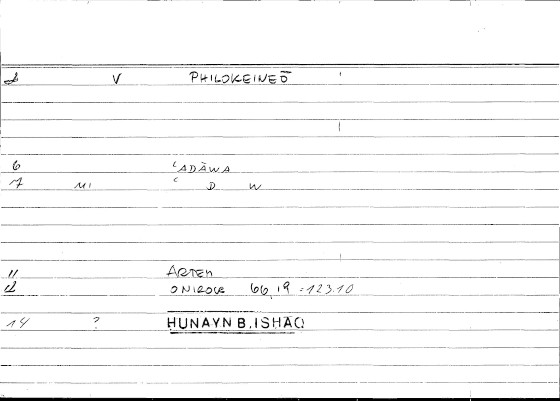 2 V PHILOKEINEŌ
6 ʿADĀWA
7 MI ʿ D W
11 ARTEM
12 ONIROCR 66,19 = 123.10
14 ? HUNAYN B. ISHAQ